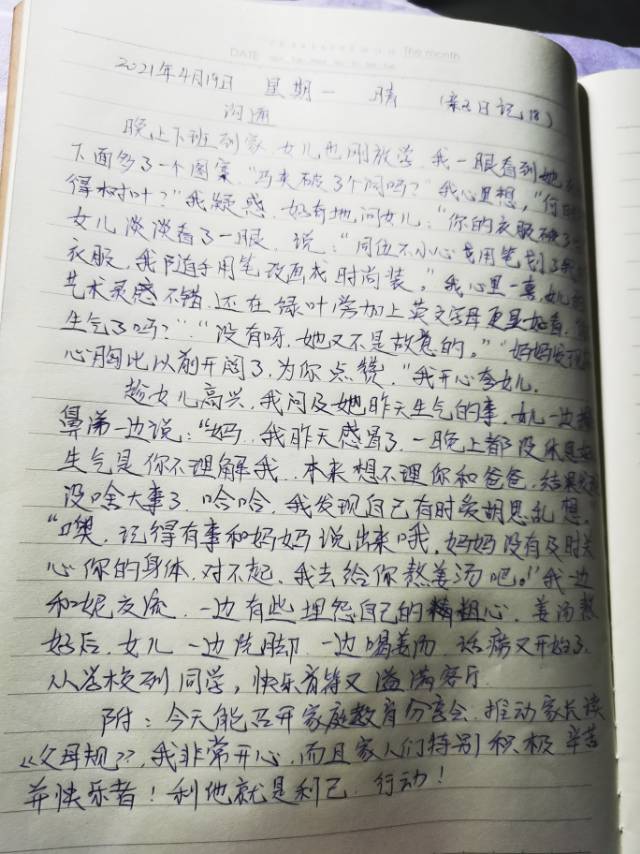 DATE
2021年4月19日 星期一 晴 (亲子日记18)
沟通
晚上下班到家,女儿也刚放学,我一眼看到她
下面多了一个图案,"马夹破了个洞吗?"我心里想,"何
得树叶?"我疑惑,好奇地问女儿:"你的衣服破了
女儿淡淡看了一眼,说:"同位不小心用笔划了我
衣服,我随手用笔改画成时尚装。"我心里一喜,女儿
艺术灵感不错,还在绿叶旁加上英文字母更显好看,
生气了吗?"."没有呀,她又不是故意的。""妈妈发现
心胸比以前开阔了,为你点赞,"我开心夸女儿.
趁女儿高兴,我问及她昨天生气的事,女儿一边擤
鼻涕一边说:"妈,我昨天感冒了,一晚上都没休息好
生气是你不理解我,本来想不理你和爸爸,结果
没啥大事了,哈哈,我发现自己有时爱胡思乱想.
"噢,记得有事和妈妈说出来哦,妈妈没有及时关
心你的身体,对不起,我去给你熬姜汤吧!"我一边
和妮交流,一边有些埋怨自己的粗心,姜汤熬
好后,女儿一边洗脚,一边喝姜汤,话痨又开始了,
从学校到同学,快乐又溢满客厅.
附:今天能召开家庭教育分享会,推动家长读
《父母规》,我非常开心,而且家人们特别积极,辛苦
并快乐着!利他就是利己,行动!